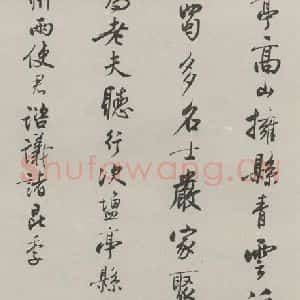 亭高山擁縣青雲
蜀多名士嚴家聚
為老夫聽行次鹽亭縣
州兩使君諮議諸昆季
Shufawang.CN